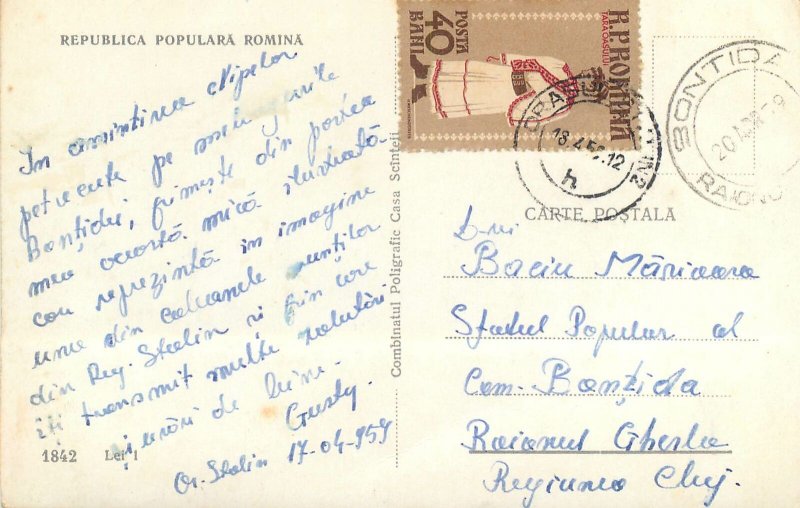 REPUBLICA POPULARĂ ROMÎNĂ
În amintirea clipelor
petrecute pe meleagurile
Bonțidei, primește din partea
mea această mică ilustrată
care reprezintă în imagine
una din cabanele munților
din Reg. Stalin și prin care
îți transmit multe salutări
și urări de bine.
Gusty.
Or. Stalin 17-04-1959
1842 Lei 1
Combinatul Poligrafic Casa Scînteii
R.P.ROMÎNĂ
ȚARA OAȘULUI
POSTA
40
BANI
18.4.59.12
h
BONȚIDA
RAIONUL
CARTE POȘTALĂ
D-nei
Baciu Mărioara
Sfatul Popular al
Com. Bonțida
Raionul Gherla
Regiunea Cluj.